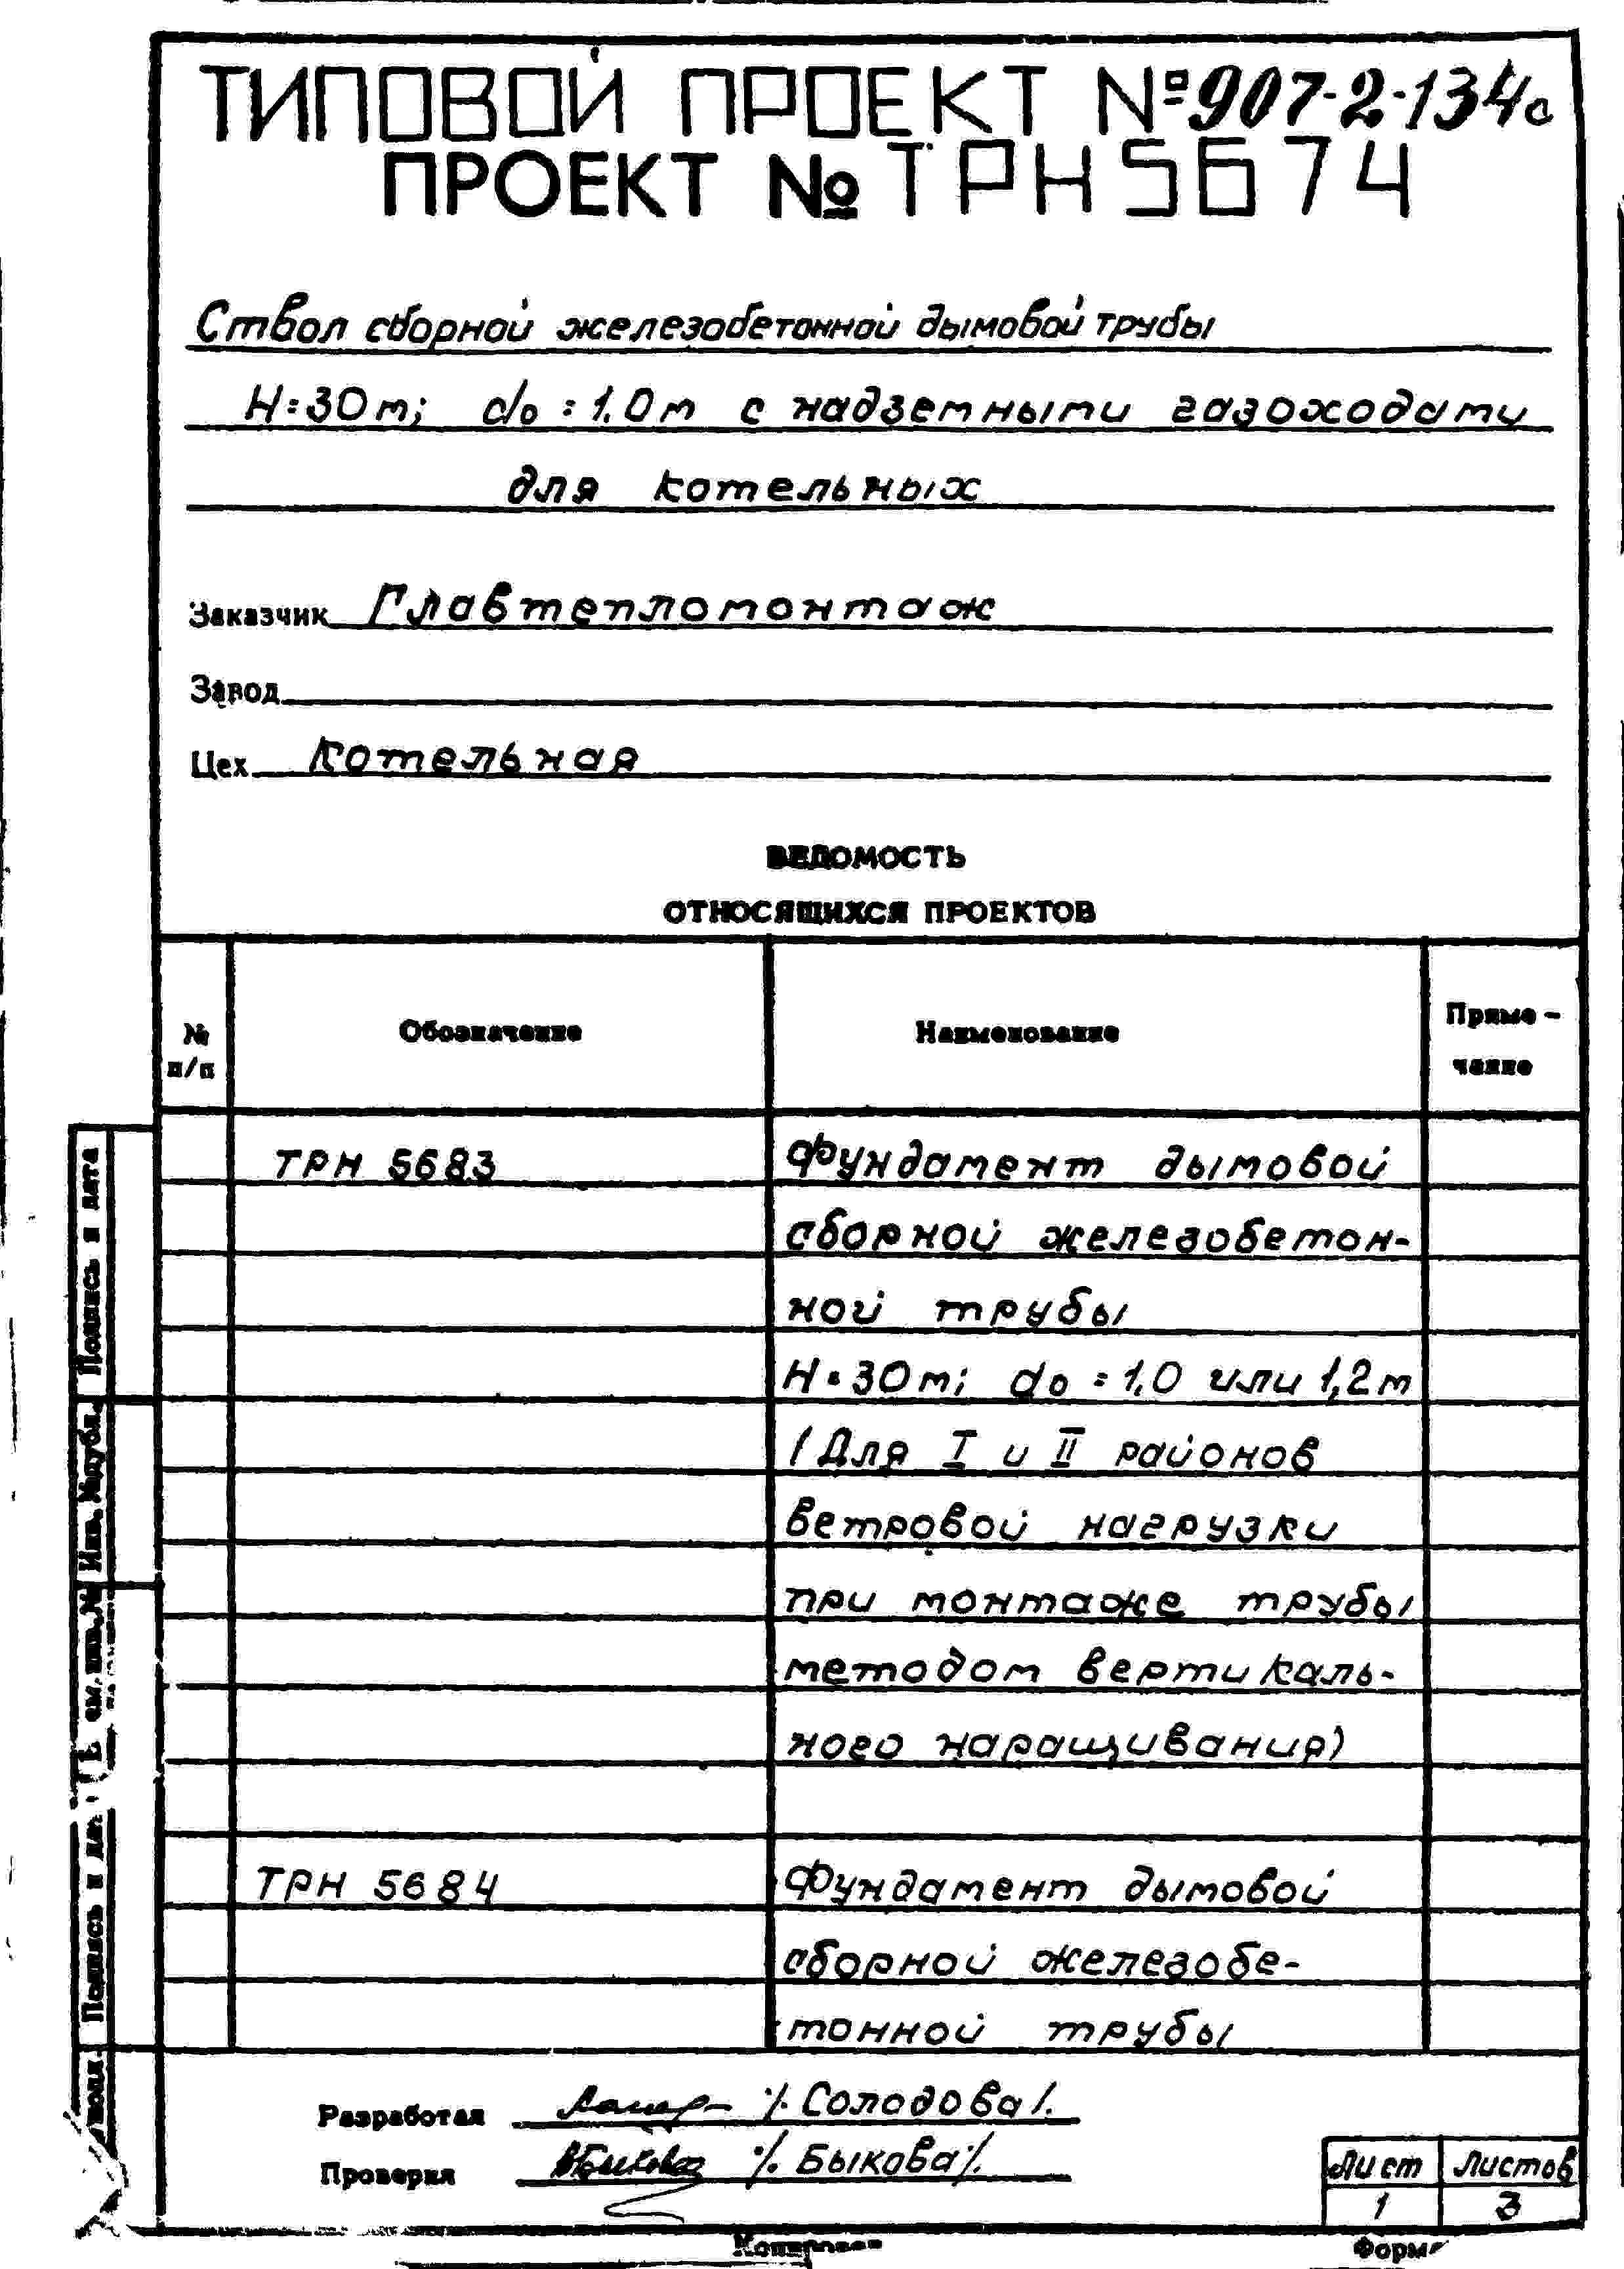 ТИПОВОЙ ПРОЕКТ №907-2-134с
ПРОЕКТ № ТРН5674
Ствол сборной железобетонной дымовой трубы
Н=30м; do=1.0м с надземными газоходами
для котельных
Заказчик Главтепломонтаж
Завод
Цех Котельная
ВЕДОМОСТЬ
ОТНОСЯЩИХСЯ ПРОЕКТОВ
№ п/п
Обозначение
Наименование
Приме-
чание
ТРН 5683
Фундамент дымовой
сборной железобетон-
ной трубы
Н=30м; do=1,0 или 1,2м
(Для I и II районов
ветровой нагрузки
при монтаже трубы
методом вертикаль-
ного наращивания)
ТРН 5684
Фундамент дымовой
сборной железобе-
тонной трубы
Разработал /Солодова/.
Проверил ВБыкова /Быкова/.
Лист Листов
1 3
Подпись и дата
Инв. №дубл.
Подпись и дата